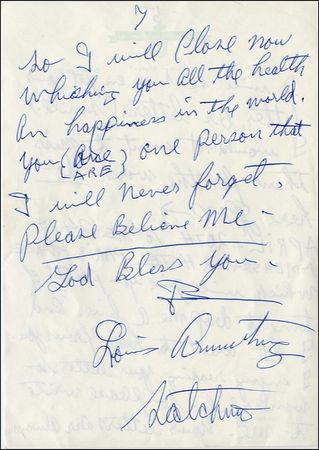 7
So I will Close now
Whishing you all the health
An happiness in the world.
you (Are
ARE) one person that
I will Never forget
Please Believe Me -
God Bless you -
Louis Armstrong
Satchmo